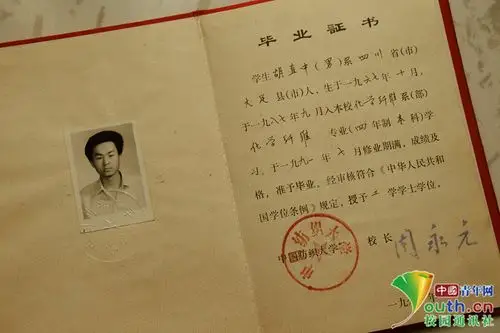 毕业证书
学生胡直中(男)系四川省(市)
大足县(市)人,生于一九六七年十月,
于一九八七年九月入本校化学纤维系(部)
化学纤维 专业(四年制本科)学
习,于一九九一年七月修业期满,成绩及
格,准予毕业。经审核符合《中华人民共和
国学位条例》规定,授予工学学士学位。
中国纺织大学
校长 周永元
一九
中国青年网
youth.cn
校园通讯社